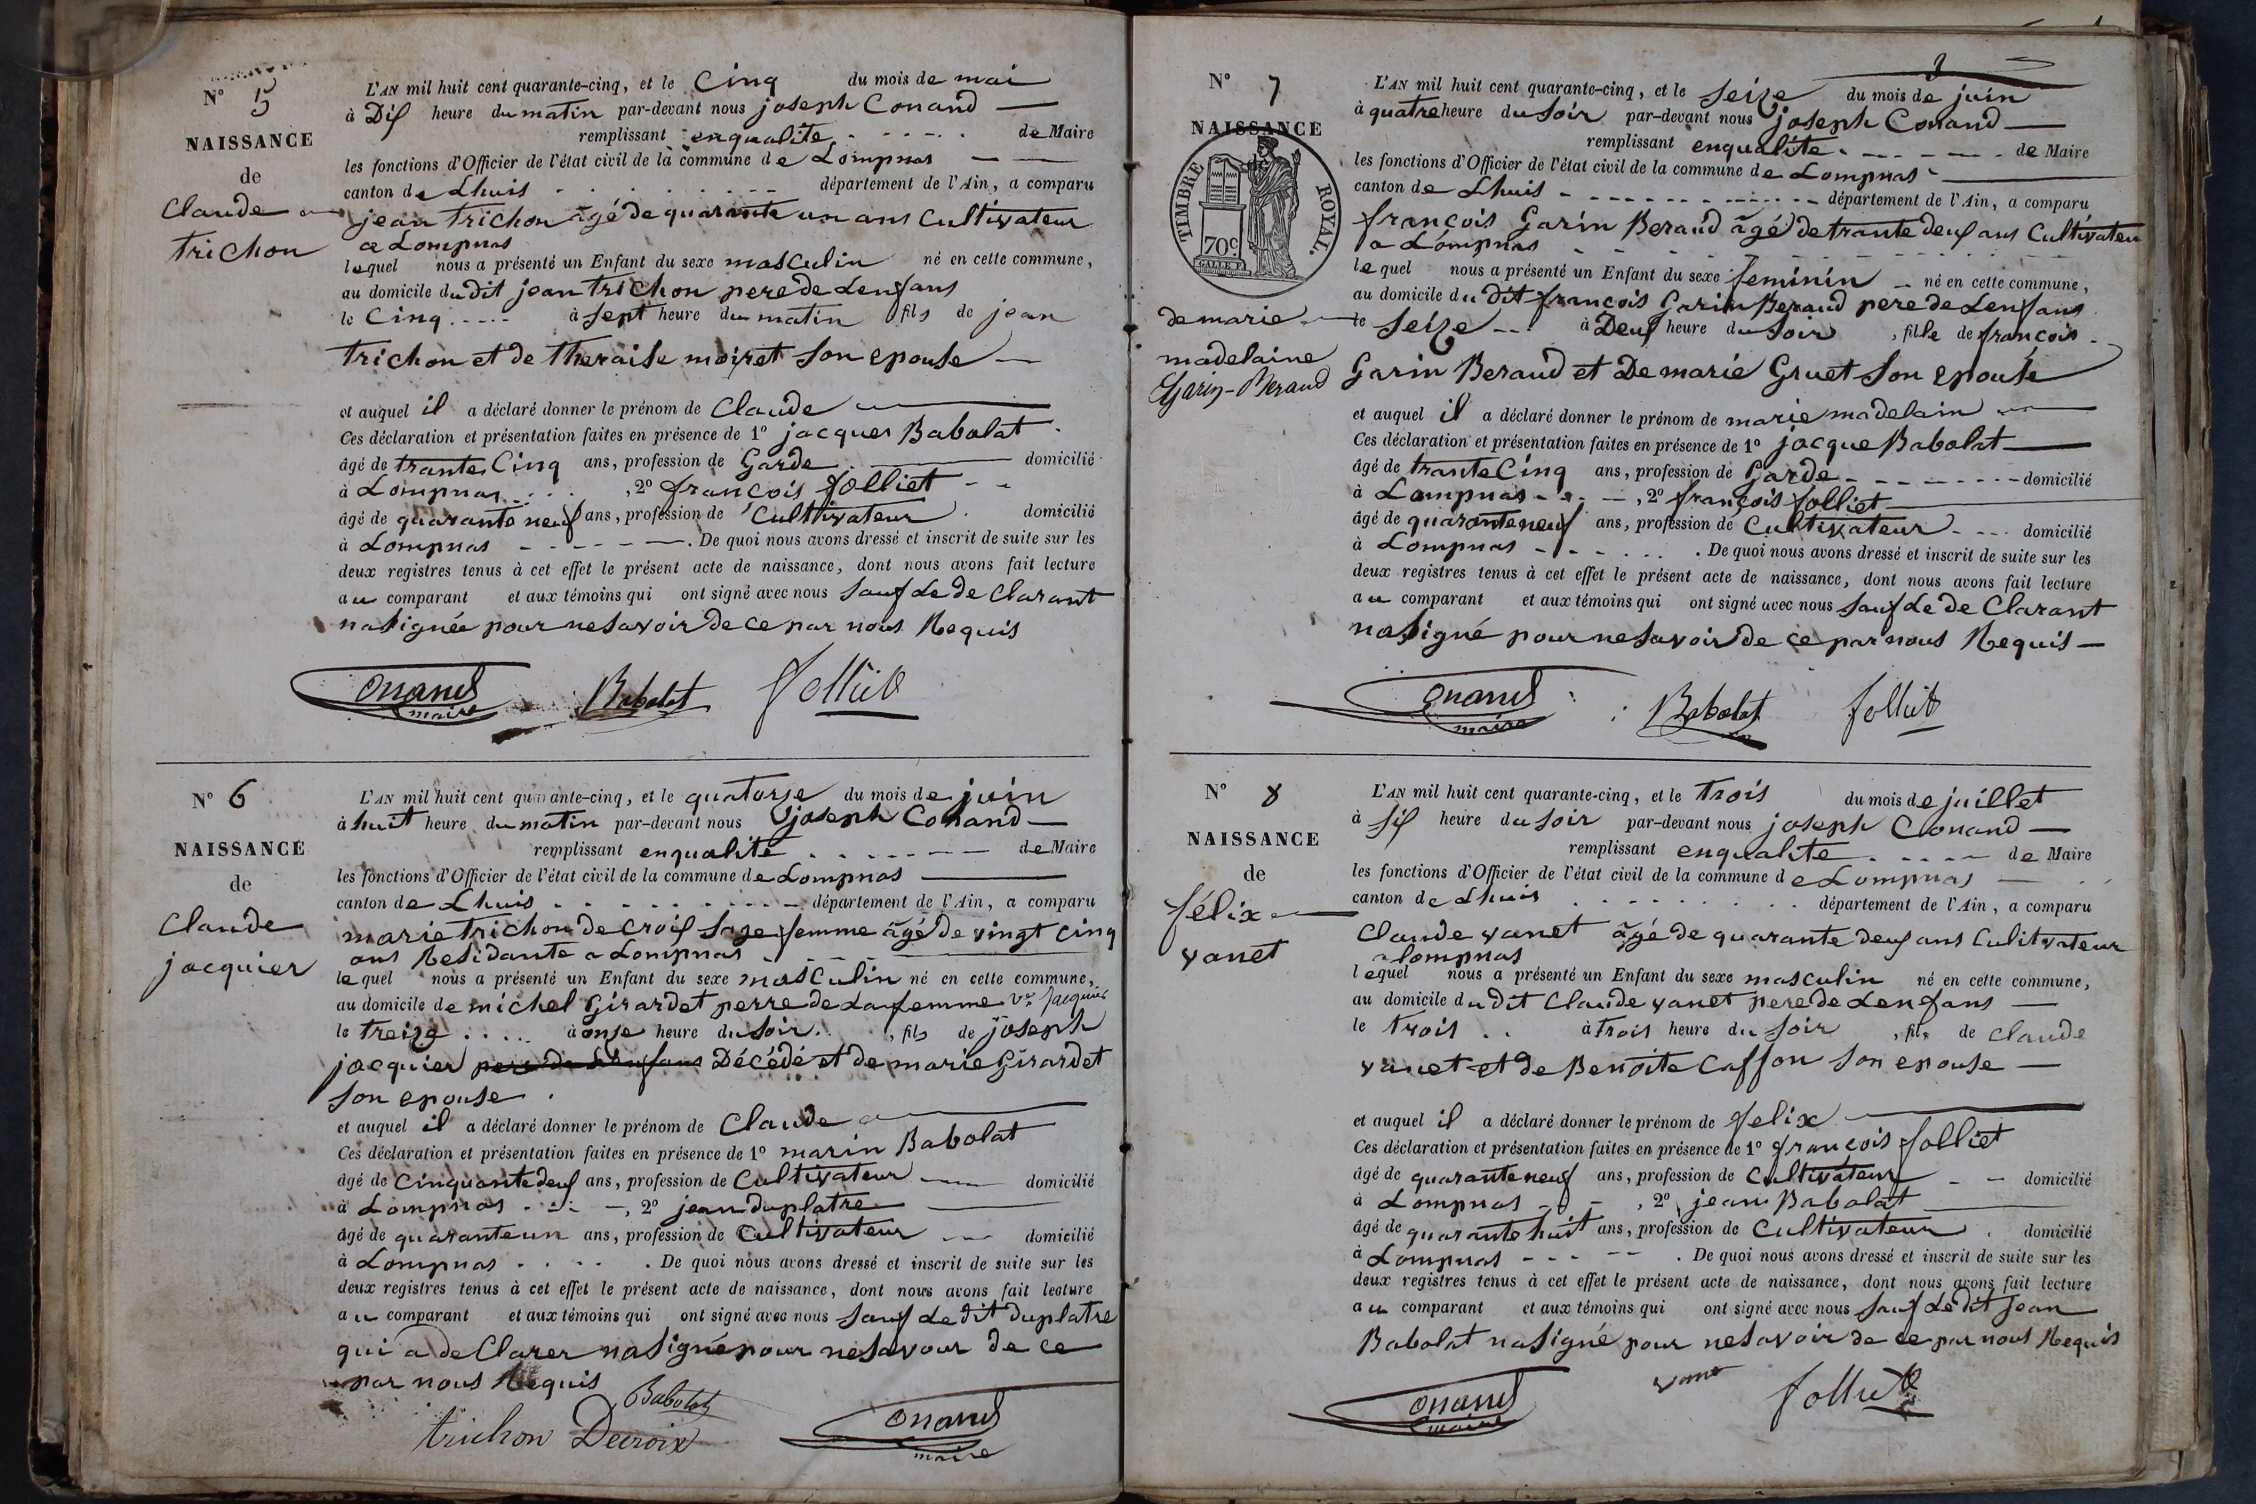 N° 5
NAISSANCE
de
Claude
trichon
L'AN mil huit cent quarante-cinq, et le Cinq du mois de mai
à Dix heure du matin par-devant nous joseph Conand
remplissant enqualite de Maire
les fonctions d'Officier de l'état civil de la commune de Lompnas
canton de Lhuis département de l'Ain, a comparu
jean trichon âgé de quarante un ans Cultivateur
a Lompnas
lequel nous a présenté un Enfant du sexe masculin né en cette commune,
au domicile du dit jean trichon pere de Lenfans
le Cinq à sept heure du matin fils de jean
trichon et de theraise moiret son epouse
et auquel il a déclaré donner le prénom de Claude
Ces déclaration et présentation faites en présence de 1° jacques Babolat
âgé de trante Cinq ans, profession de Garde domicilié
à Lompnas, 2° françois folliet
âgé de quarante neuf ans, profession de Cultivateur domicilié
à Lompnas. De quoi nous avons dressé et inscrit de suite sur les
deux registres tenus à cet effet le présent acte de naissance, dont nous avons fait lecture
au comparant et aux témoins qui ont signé avec nous sauf Le de Clarant
na signée pour ne savoir de ce par nous Requis
Conand maire Babolat folliet
N° 6
NAISSANCE
de
Claude
jacquier
L'AN mil huit cent quarante-cinq, et le quatorse du mois de juin
à huit heure du matin par-devant nous joseph Conand
remplissant enqualite de Maire
les fonctions d'Officier de l'état civil de la commune de Lompnas
canton de Lhuis département de l'Ain, a comparu
marie trichon de croix sage femme âgé de vingt cinq
ans Residante a Lompnas
lequel nous a présenté un Enfant du sexe masculin né en cette commune,
au domicile de michel Girardet perre de La femme Ve Jacquier
le treize à onse heure du soir, fils de joseph
jacquier pere de Lenfans Décédé et de marie Girardet
son epouse
et auquel il a déclaré donner le prénom de Claude
Ces déclaration et présentation faites en présence de 1° marin Babolat
âgé de Cinquante deux ans, profession de Cultivateur domicilié
à Lompnas, 2° jean duplatre
âgé de quarante un ans, profession de Cultivateur domicilié
à Lompnas. De quoi nous avons dressé et inscrit de suite sur les
deux registres tenus à cet effet le présent acte de naissance, dont nous avons fait lecture
au comparant et aux témoins qui ont signé avec nous sauf Le dit Duplatre
qui a de Clarer na signé pour ne savour de ce
par nous Requis
Babolat
trichon Decroix Conand maire
N° 7
NAISSANCE
TIMBRE ROYAL.
70c
de marie
madelaine
Garin-Beraud
L'AN mil huit cent quarante-cinq, et le seize du mois de juin
à quatre heure du soir par-devant nous joseph Conand
remplissant enqualite de Maire
les fonctions d'Officier de l'état civil de la commune de Lompnas
canton de Lhuis département de l'Ain, a comparu
françois Garin Beraud âgé de trante deux ans Cultivateu
a Lompnas
lequel nous a présenté un Enfant du sexe feminin né en cette commune,
au domicile du dit françois Garin Beraud pere de Lenfans
le seize à Deux heure du soir, fille de françois
Garin Beraud et De marie Gruet son epouse
et auquel il a déclaré donner le prénom de marie madelain
Ces déclaration et présentation faites en présence de 1° jacque Babolat
âgé de trante Cinq ans, profession de Garde domicilié
à Lompnas, 2° françois folliet
âgé de quarante neuf ans, profession de Cultivateur domicilié
à Lompnas. De quoi nous avons dressé et inscrit de suite sur les
deux registres tenus à cet effet le présent acte de naissance, dont nous avons fait lecture
au comparant et aux témoins qui ont signé avec nous sauf Le de Clarant
na signé pour ne savoir de ce par nous Requis
Conand maire Babolat folliet
N° 8
NAISSANCE
de
félix
vanet
L'AN mil huit cent quarante-cinq, et le trois du mois de juillet
à six heure du soir par-devant nous joseph Conand
remplissant enqualite de Maire
les fonctions d'Officier de l'état civil de la commune de Lompnas
canton de Lhuis département de l'Ain, a comparu
Claude vanet âgé de quarante deux ans Culitvateur
a lompnas
lequel nous a présenté un Enfant du sexe masculin né en cette commune,
au domicile du dit Claude vanet pere de Lenfans
le trois à trois heure du soir, fils de Claude
vanet et de Benoite Caffon son epouse
et auquel il a déclaré donner le prénom de felix
Ces déclaration et présentation faites en présence de 1° françois folliet
âgé de quarante neuf ans, profession de Cultivateur domicilié
à Lompnas, 2° jean Babolat
âgé de quarante huit ans, profession de Cultivateur domicilié
à Lompnas. De quoi nous avons dressé et inscrit de suite sur les
deux registres tenus à cet effet le présent acte de naissance, dont nous avons fait lecture
au comparant et aux témoins qui ont signé avec nous sauf Le dit jean
Babolat na signé pour ne savoir de ce par nous Requis
Conand maire vane folliet